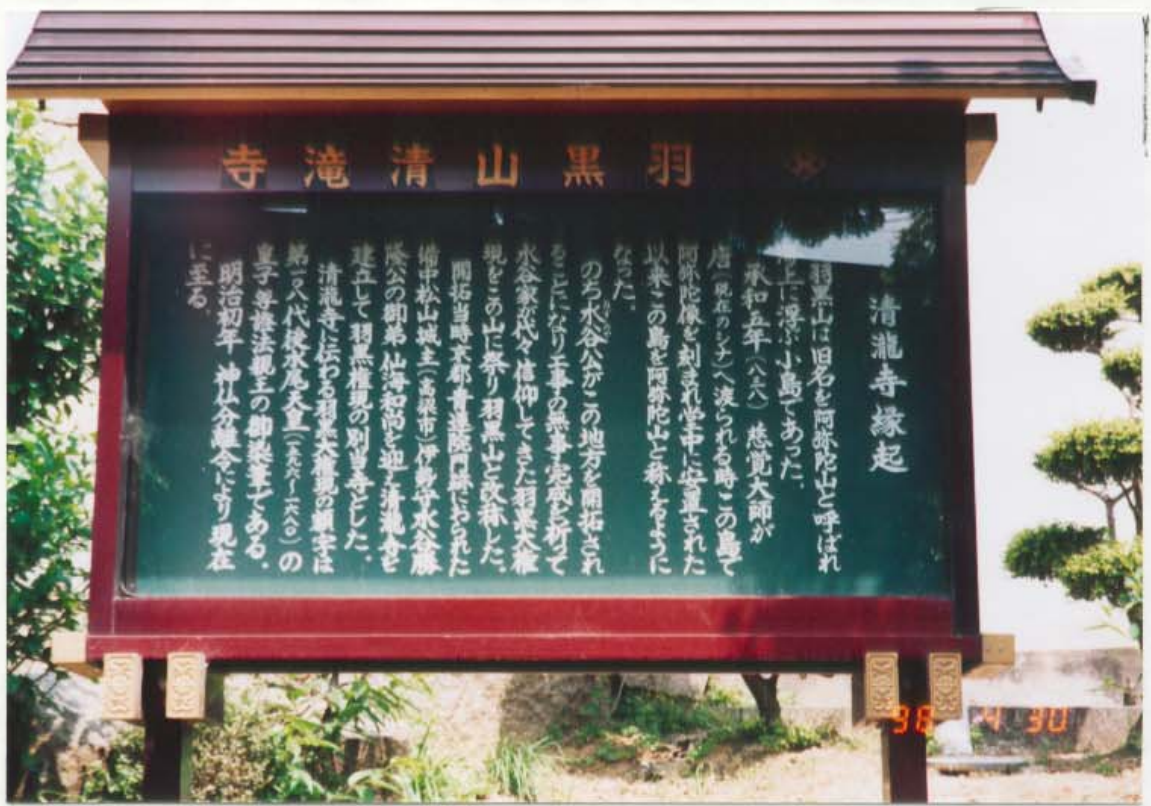 羽黒山清滝寺
清瀧寺縁起
羽黒山は旧名を阿弥陀山と呼ばれ
上に浮ぶ小島であった。
承和五年(八三八) 慈覚大師が
唐(現在のシナ)へ渡られる時この島で
阿弥陀像を刻まれ堂中に安置された
以来この島を阿弥陀山と称えるように
なった。
のち水谷公がこの地方を開拓され
ることになり工事の無事完成を祈って
水谷家が代々信仰してきた羽黒大権
現をこの山に祭り羽黒山と改称した。
開拓当時京都青蓮院門跡におられた
備中松山城主(高梁市)伊勢守水谷勝
隆公の御弟 仙海和尚を迎え清瀧寺を
建立して羽黒権現の別当寺とした。
清瀧寺に伝わる羽黒大権現の額字は
第一〇八代後水尾天皇(一五九六〜一六八〇)の
皇子 法親王の御染筆である。
明治初年 神仏分離令により現在
に至る。
98 4 30